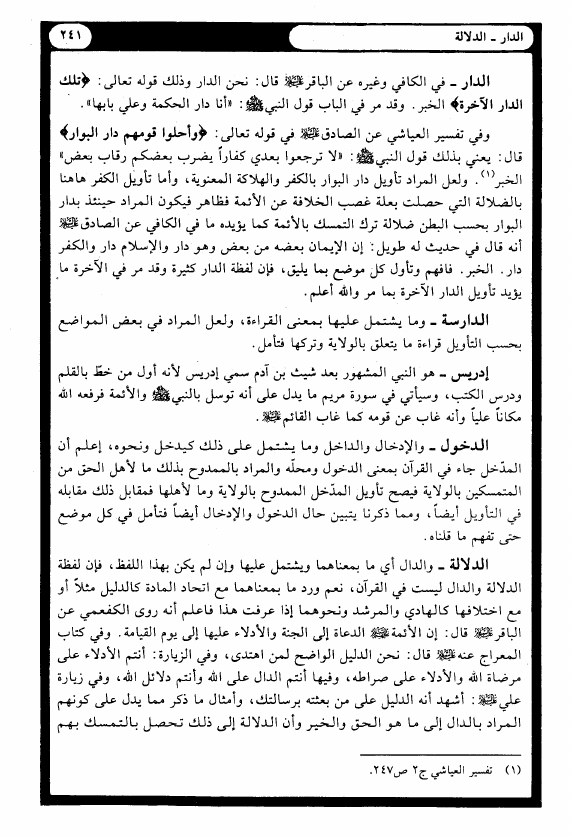 الدار ـ الدلالة
٢٤١
الدار ـ في الكافي وغيره عن الباقر عليه السلام قال: نحن الدار وذلك قوله تعالى: ﴿تلك
الدار الآخرة﴾ الخبر. وقد مر في الباب قول النبي ﷺ: «أنا دار الحكمة وعلي بابها».
وفي تفسير العياشي عن الصادق عليه السلام في قوله تعالى: ﴿وأحلوا قومهم دار البوار﴾
قال: يعني بذلك قول النبي ﷺ: «لا ترجعوا بعدي كفاراً يضرب بعضكم رقاب بعض»
الخبر(١). ولعل المراد تأويل دار البوار بالكفر والهلاكة المعنوية، وأما تأويل الكفر هاهنا
بالضلالة التي حصلت بعلة غصب الخلافة عن الأئمة فظاهر فيكون المراد حينئذ بدار
البوار بحسب البطن ضلالة ترك التمسك بالأئمة كما يؤيده ما في الكافي عن الصادق عليه السلام
أنه قال في حديث له طويل: إن الإيمان بعضه من بعض وهو دار والإسلام دار والكفر
دار. الخبر. فافهم وتأول كل موضع بما يليق، فإن لفظة الدار كثيرة وقد مر في الآخرة ما
يؤيد تأويل الدار الآخرة بما مر والله أعلم.
الدارسة ـ وما يشتمل عليها بمعنى القراءة، ولعل المراد في بعض المواضع
بحسب التأويل قراءة ما يتعلق بالولاية وتركها فتأمل.
إدريس ـ هو النبي المشهور بعد شيث بن آدم سمي إدريس لأنه أول من خطّ بالقلم
ودرس الكتب، وسيأتي في سورة مريم ما يدل على أنه توسل بالنبي ﷺ والأئمة فرفعه الله
مكاناً علياً وأنه غاب عن قومه كما غاب القائم عليه السلام.
الدخول ـ والإدخال والداخل وما يشتمل على ذلك كيدخل ونحوه، إعلم أن
المدّخل جاء في القرآن بمعنى الدخول ومحلّه والمراد بالممدوح بذلك ما لأهل الحق من
المتمسكين بالولاية فيصح تأويل المدّخل الممدوح بالولاية وما لأهلها فمقابل ذلك مقابله
في التأويل أيضاً، ومما ذكرنا يتبين حال الدخول والإدخال أيضاً فتأمل في كل موضع
حتى تفهم ما قلناه.
الدلالة ـ والدال أي ما بمعناهما ويشتمل عليها وإن لم يكن بهذا اللفظ، فإن لفظة
الدلالة والدال ليست في القرآن، نعم ورد ما بمعناهما مع اتحاد المادة كالدليل مثلاً أو
مع اختلافها كالهادي والمرشد ونحوهما إذا عرفت هذا فاعلم أنه روى الكفعمي عن
الباقر عليه السلام قال: إن الأئمة عليهم السلام الدعاة إلى الجنة والأدلاء عليها إلى يوم القيامة. وفي كتاب
المعراج عنه عليه السلام قال: نحن الدليل الواضح لمن اهتدى، وفي الزيارة: أنتم الأدلاء على
مرضاة الله والأدلاء على صراطه، وفيها أنتم الدال على الله وأنتم دلائل الله، وفي زيارة
علي عليه السلام: أشهد أنه الدليل على من بعثته برسالتك، وأمثال ما ذكر مما يدل على كونهم
المراد بالدال إلى ما هو الحق والخير وأن الدلالة إلى ذلك تحصل بالتمسك بهم
(١) تفسير العياشي ج٢ ص٢٤٧.